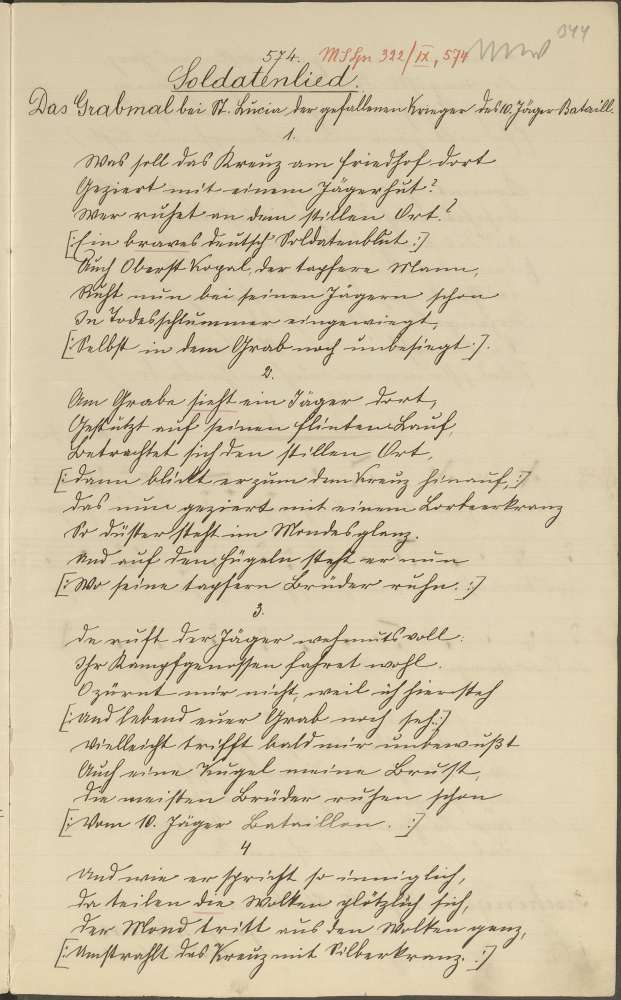 344
574. MS Spr 322/IX, 574
Soldatenlied.
Das Grabmal bei St. Lucia, der gefallenen Krieger des 10. Jäger Bataill.
1.
Was soll das Kreuz am Friedhof dort
Geziert mit einem Jägerhut?
Wer ruhet an dem stillen Ort?
[: Ein braves deutsch Soldatenblut :]
Auch Oberst Kopal, der tapfere Mann,
Ruht nun bei seinen Jägern schon
In Todesschlummer eingewiegt,
[: Selbst in dem Grab noch unbesiegt :].
2.
Am Grabe sieht ein Jäger dort,
Gestützt auf seinen Flinten-Lauf,
Betrachtet sich den stillen Ort,
[: dann blickt er zum dem Kreuz hinauf, :]
Das nun geziert mit einem Lorbeerkranz
So düster steht im Mondesglanz.
Und auf den Hügeln steht er nun
[: Wo seine tapfern Brüder ruhn. :]
3.
Da ruft der Jäger wehmutsvoll:
Ihr Kampfgenossen fahret wohl.
O zürnt mir nicht, weil ich hier steh
[: und lebend euer Grab noch seh :]
Vielleicht trifft bald mir unbewußt
Auch eine Kugel meine Brust,
Die meisten Brüder ruhen schon
[: Vom 10. Jäger Bataillon. :]
4
Und wie er spricht so inniglich,
Da teilen die Wolken plötzlich sich,
Der Mond tritt aus den Wolken ganz,
[: Umstrahlt das Kreuz mit Silberkranz. :]